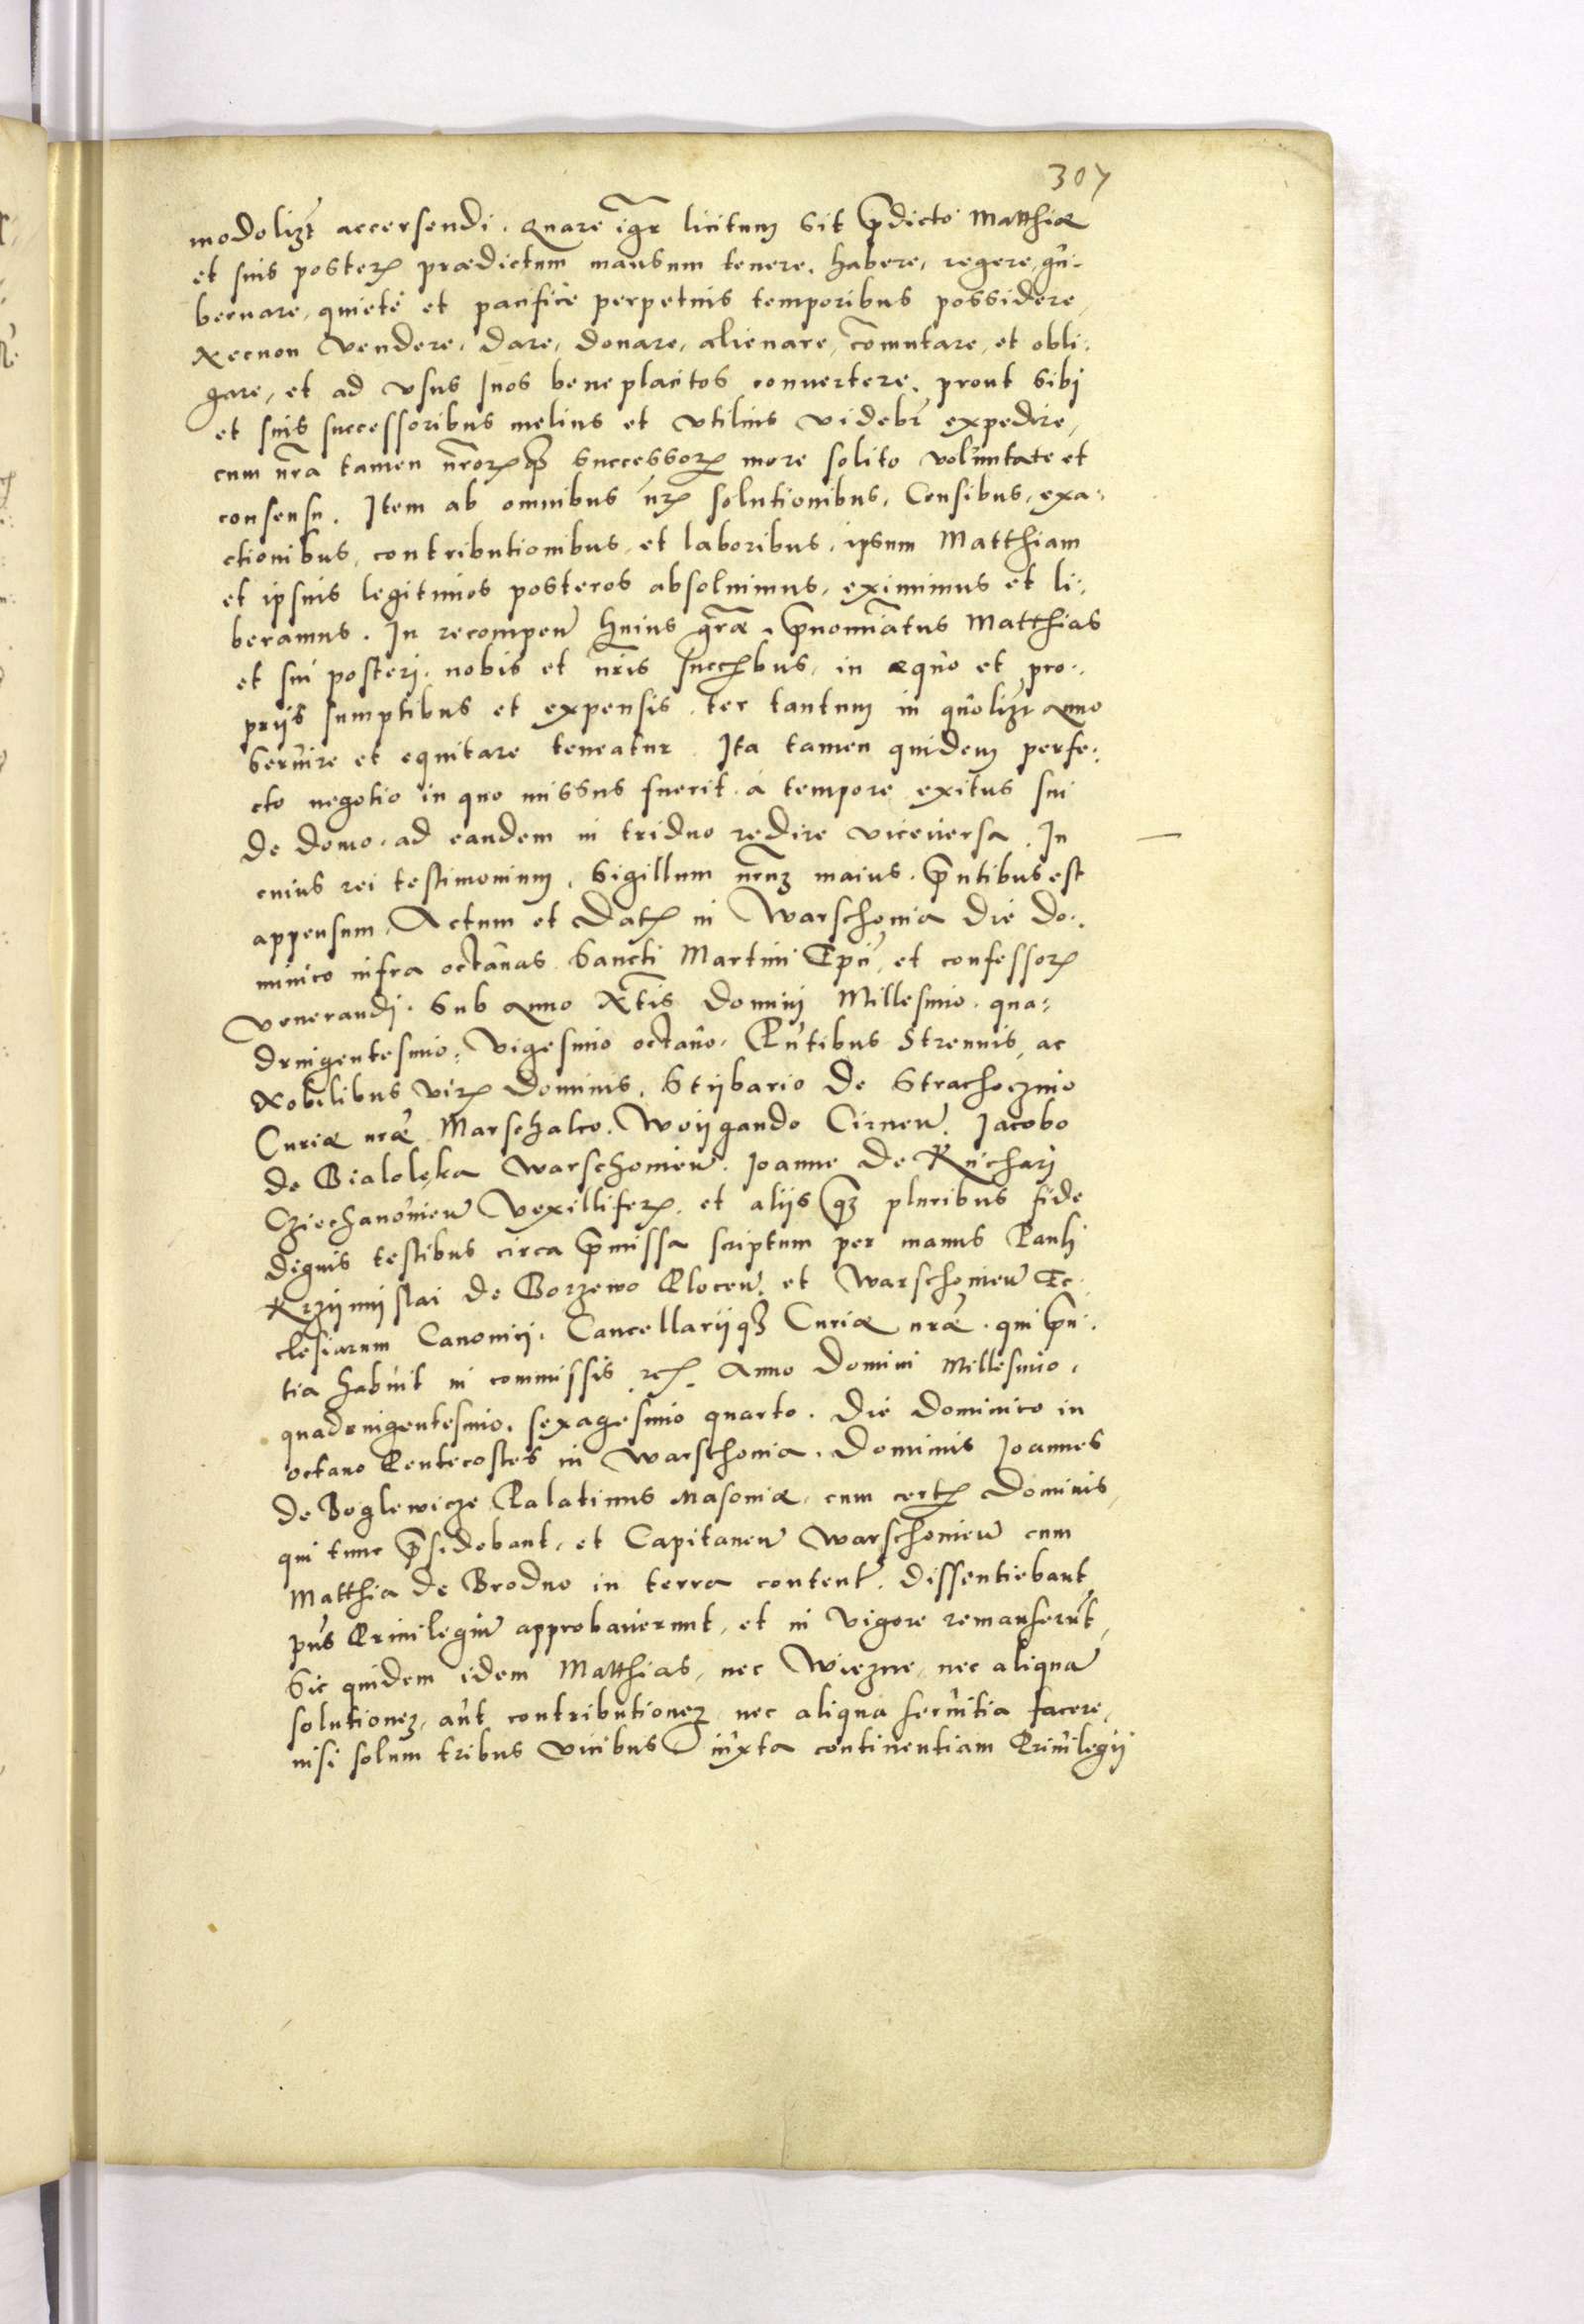 307
modolizt accersendi. Quare igr licitum sit pdicto Matthiæ
et suis posteris prædictum mansum tenere, habere, regere, gu-
bernare, quietè et pacificè perpetuis temporibus possidere,
Necnon vendere, dare, donare, alienare, comutare, et obli-
gare, et ad vsus suos beneplacitos conuertere, prout sibi
et suis successoribus melius et vtilius videbr expedire,
cum nra tamen nrorumq successorum more solito voluntate et
consensu. Item ab omnibus nris solutionibus, Censibus, exa-
ctionibus, contributionibus, et laboribus, ipsum Matthiam
et ipsius legitimos posteros absoluimus, eximimus et li-
beramus. In recompen huius græ, pnominatus Matthias
et sui posteri, nobis et nris succribus, in æquo et pro-
prijs sumptibus et expensis, ter tantum in quolizt anno
seruire et equitare teneatur. Ita tamen quidem perfe-
cto negotio in quo missus fuerit, à tempore exitus sui
de domo, ad eandem in triduo redire viceuersa. In
cuius rei testimonium, Sigillum nrum maius, pntibus est
appensum. Actum et Datum in Warschouia die do-
minico infra octauas Sancti Martini Epi, et confessoris
venerandi. Sub anno Ntis Domini Millesimo, qua-
dringentesimo, Vigesimo octauo. Pntibus Strenuis, ac
Nobilibus viris Dominis, Stijbario de Strachoczino
Curiæ nræ Marschalco, Woijgando Cirnen. Jacobo
de Bialolęka Warschouien. Joanne de Kuchari
Cziechanouien Vexilliferis, et alijs qz pluribus fide
dignis testibus circa pmissa scriptum per manus Pauli
Krzijmijslai de Borzewo Plocen. et Warschouien Ec-
clesiarum Canonici, Cancellarijqz Curiæ nræ, qui pn-
tia habuit in commissis rc. Anno Domini Millesimo,
quadringentesimo, sexagesimo quarto, die dominico in
octauo Pentecostes in Warschouia. Dominus Joannes
de Boglewicze Palatinus Masouiæ, cum certis Dominis,
qui tunc psidebant, et Capitaneu Warschouien cum
Matthia de Brodno in terra content. dissentiebant
pns Priuilegiu approbauerunt, et in vigore remanserut,
Sic quidem idem Matthias, nec Wiezne, nec aliqua
solutionez, aut contributionez nec aliqua seruitia facere,
nisi solum tribus vicibus iuxta continentiam Priuilegij